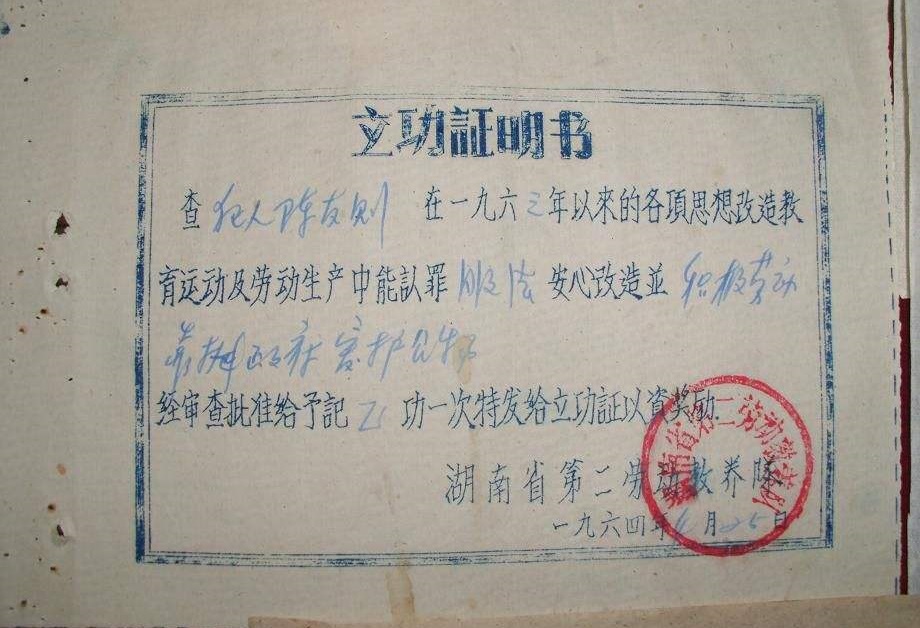 立功証明书
查 犯人陈友则 在一九六三年以來的各項思想改造教
育运动及劳动生产中能認罪 服法 安心改造並 积极劳动
靠拢政府 爱护公物
经审查批准给予記 乙 功一次特发给立功証以資奖励.
湖南省第二劳动教养队
一九六四年 月25日
湖南省第二劳动教养队